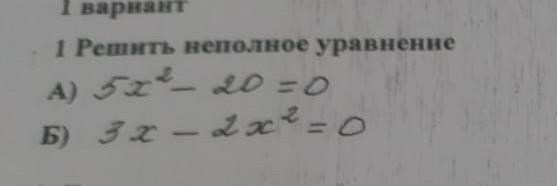 1 вариант
1 Решить неполное уравнение
А) 5x² - 20 = 0
Б) 3x - 2x² = 0